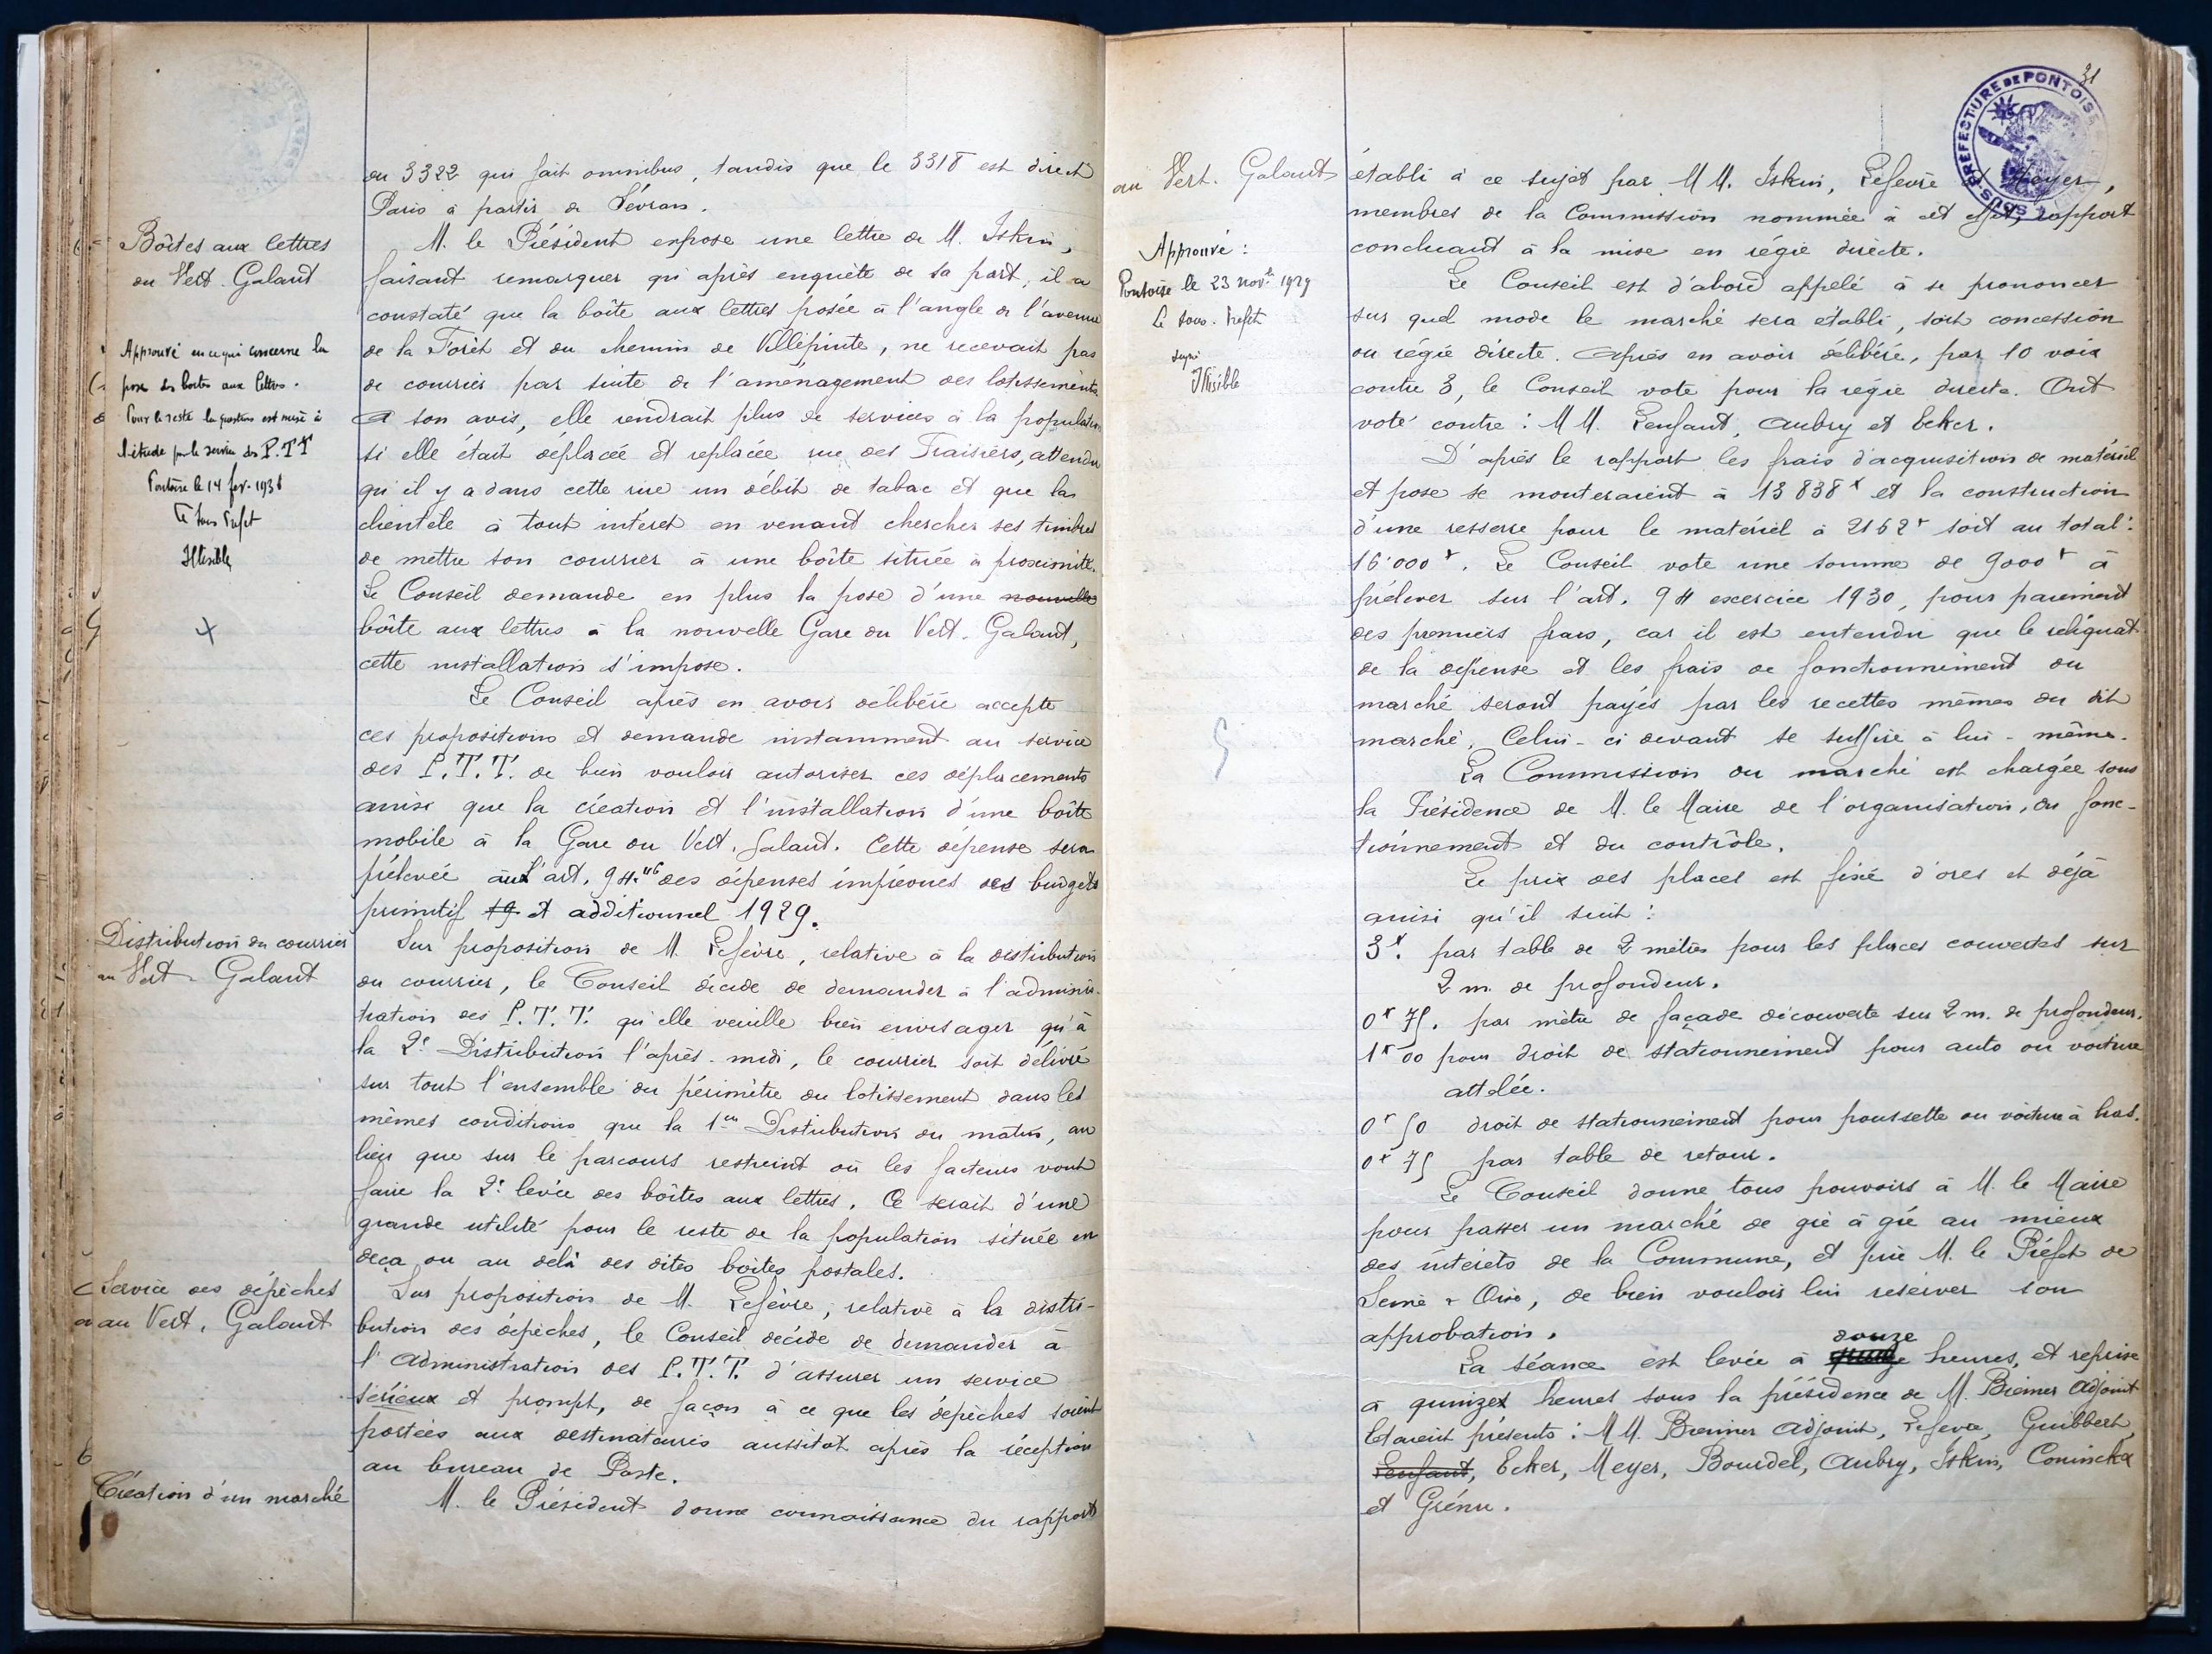 du 3322 qui fait omnibus, tandis que le 3318 est direct
Paris à partir de Sévran.
Boîtes aux lettres
du Vert. Galant
M. le Président expose une lettre de M. Iskin,
faisant remarquer qu'après enquête de sa part, il a
constaté que la boîte aux lettres posée à l'angle de l'avenue
de la Forêt et du chemin de Villepinte, ne recevait pas
de courrier par suite de l'aménagement des lotissements.
A son avis, elle rendrait plus de services à la population
si elle était déplacée et replacée rue des Fraisiers, attendu
qu'il y a dans cette rue un débit de tabac et que la
clientèle a tout intéret en venant chercher ses timbres
de mettre son courrier à une boîte située à proximité.
Le Conseil demande en plus la pose d'une nouvelle
boîte aux lettres à la nouvelle Gare du Vert. Galant,
cette installation s'impose.
Approuvé en ce qui concerne la
pose des boites aux lettres.
Pour le reste la question est mise à
l'étude par le service des P.T.T
Pontoise le 14 fev. 1930
Le Sous Préfet
Illisible
Le Conseil après en avoir délibéré accepte
ces propositions et demande instamment au service
des P.T.T. de bien vouloir autoriser ces déplacements
ainsi que la création et l'installation d'une boîte
mobile à la Gare du Vert. Galant. Cette dépense sera
prélevée aux l'art. 94. des dépenses imprévues des budgets
primitif 19 et additionnel 1929.
Distribution du courrier
au Vert - Galant
Sur proposition de M. Lefèvre, relative à la distribution
du courrier, le Conseil décide de demander à l'adminis-
tration des P.T.T. qu'elle veuille bien envisager qu'à
la 2e Distribution l'après-midi, le courrier soit délivré
sur tout l'ensemble du périmètre du lotissement dans les
mêmes conditions que la 1ere Distribution du matin, au
lieu que sur le parcours restreint où les facteurs vont
faire la 2e levée des boîtes aux lettres. Ce serait d'une
grande utilité pour le reste de la population située en
deça ou au delà des dites boîtes postales.
Service des dépèches
au Vert. Galant
Sur proposition de M. Lefèvre, relative à la distri-
bution des dépèches, le Conseil décide de demander à
l'Administration des P.T.T. d'assurer un service
sérieux et prompt, de façon à ce que les dépèches soient
portées aux destinataires aussitôt après la réception
au bureau de Poste.
Création d'un marché
M. le Président donne connaissance du rapport
31
SOUS PRÉFECTURE DE PONTOISE
au Vert. Galant
établi à ce sujet par MM. Iskin, Lefevre et Meyer,
membres de la Commission nommée à cet effet, rapport
concluant à la mise en régie directe.
Approuvé :
Pontoise le 23 novbre 1929
Le Sous. Préfet
signé
Illisible
Le Conseil est d'abord appelé à se prononcer
sur quel mode le marché sera établi, soit concession
ou régie directe. Après en avoir délibéré, par 10 voix
contre 3, le Conseil vote pour la régie directe. Ont
voté contre : MM. Lenfant, Aubry et Ecker.
D'après le rapport les frais d'acquisition de matériel
et pose se monteraient à 13838f et la construction
d'une resserre pour le matériel à 2162f soit au total :
16.000f. Le Conseil vote une somme de 9000f à
prélever sur l'art. 94 excercice 1930, pour paiement
des premiers frais, car il est entendu que le reliquat
de la dépense et les frais de fonctionnement du
marché seront payés par les recettes mêmes du dit
marché, Celui-ci devant se suffire à lui-même.
La Commission du marché est chargée sous
la Présidence de M. le Maire de l'organisation, du fonc-
tionnement et du contrôle.
Le prix des places est fixé d'ores et déjà
ainsi qu'il suit :
3f. par table de 2 mètres pour les places couvertes sur
2 m. de profondeur.
0f 75. par mètre de façade découverte sur 2 m. de profondeur.
1f 00 pour droit de stationnement pour auto ou voiture
attelée.
0f 50 droit de stationnement pour poussette ou voiture à bras.
0f 75 par table de retour.
Le Conseil donne tous pouvoirs à M. le Maire
pour passer un marché de gré à gré au mieux
des intérets de la Commune, et prie M. le Préfet de
Seine & Oise, de bien vouloir lui réserver son
approbation.
La séance est levée à douze heures, et reprise
à quinze heures sous la présidence de M. Bremer Adjoint
Etaient présents : MM. Bremer Adjoint, Lefevre, Guibbert,
Lenfant, Ecker, Meyer, Bourdel, Aubry, Iskin, Coninckx
et Grénu.